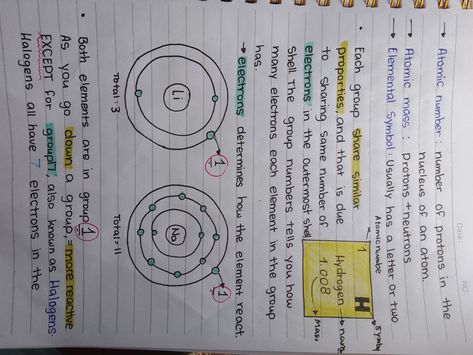 Date
NO
→ Atomic number: number of protons in the
nucleus of an atom.
→ Atomic mass : protons + neutrons
→ Elemental symbol: Usually has a letter or two
Atomic number
1
H
→ symbol
Hydrogen
→ name
1.008
→ mass
• Each group share similar
properties, and that is due
to sharing same number of
electrons in the outermost shell
shell. The group numbers tells you how
many electrons each element in the group
has.
→ electrons determines how the element react.
Li
1
Total: 3
Na
1
Total = 11
• Both elements are in group 1
As you go down a group, = more reactive
EXCEPT for group 17, also known as Halogens.
Halogens all have 7 electrons in the